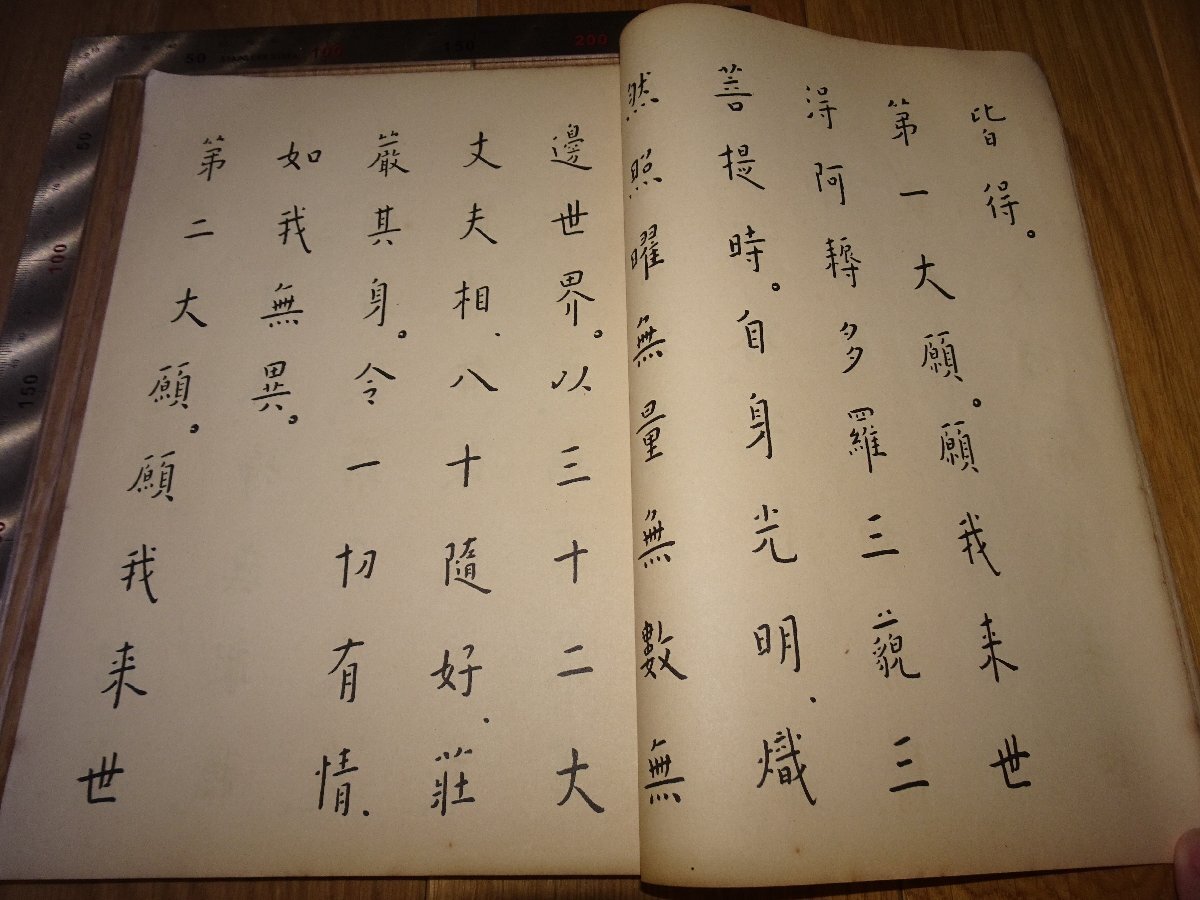 皆得。
第一大願。願我来世
得阿耨多羅三藐三
菩提時。自身光明、熾
然照曜無量無數無
邊世界。以三十二大
丈夫相、八十隨好、莊
嚴其身。令一切有情、
如我無異。
第二大願。願我来世
50
100
150
200
50
100
150